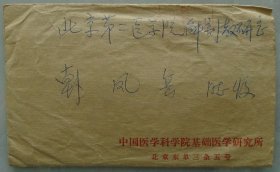 北京第二医学院 解剖教研室
韩凤岳 同志收
中国医学科学院基础医学研究所
北京东单三条五号